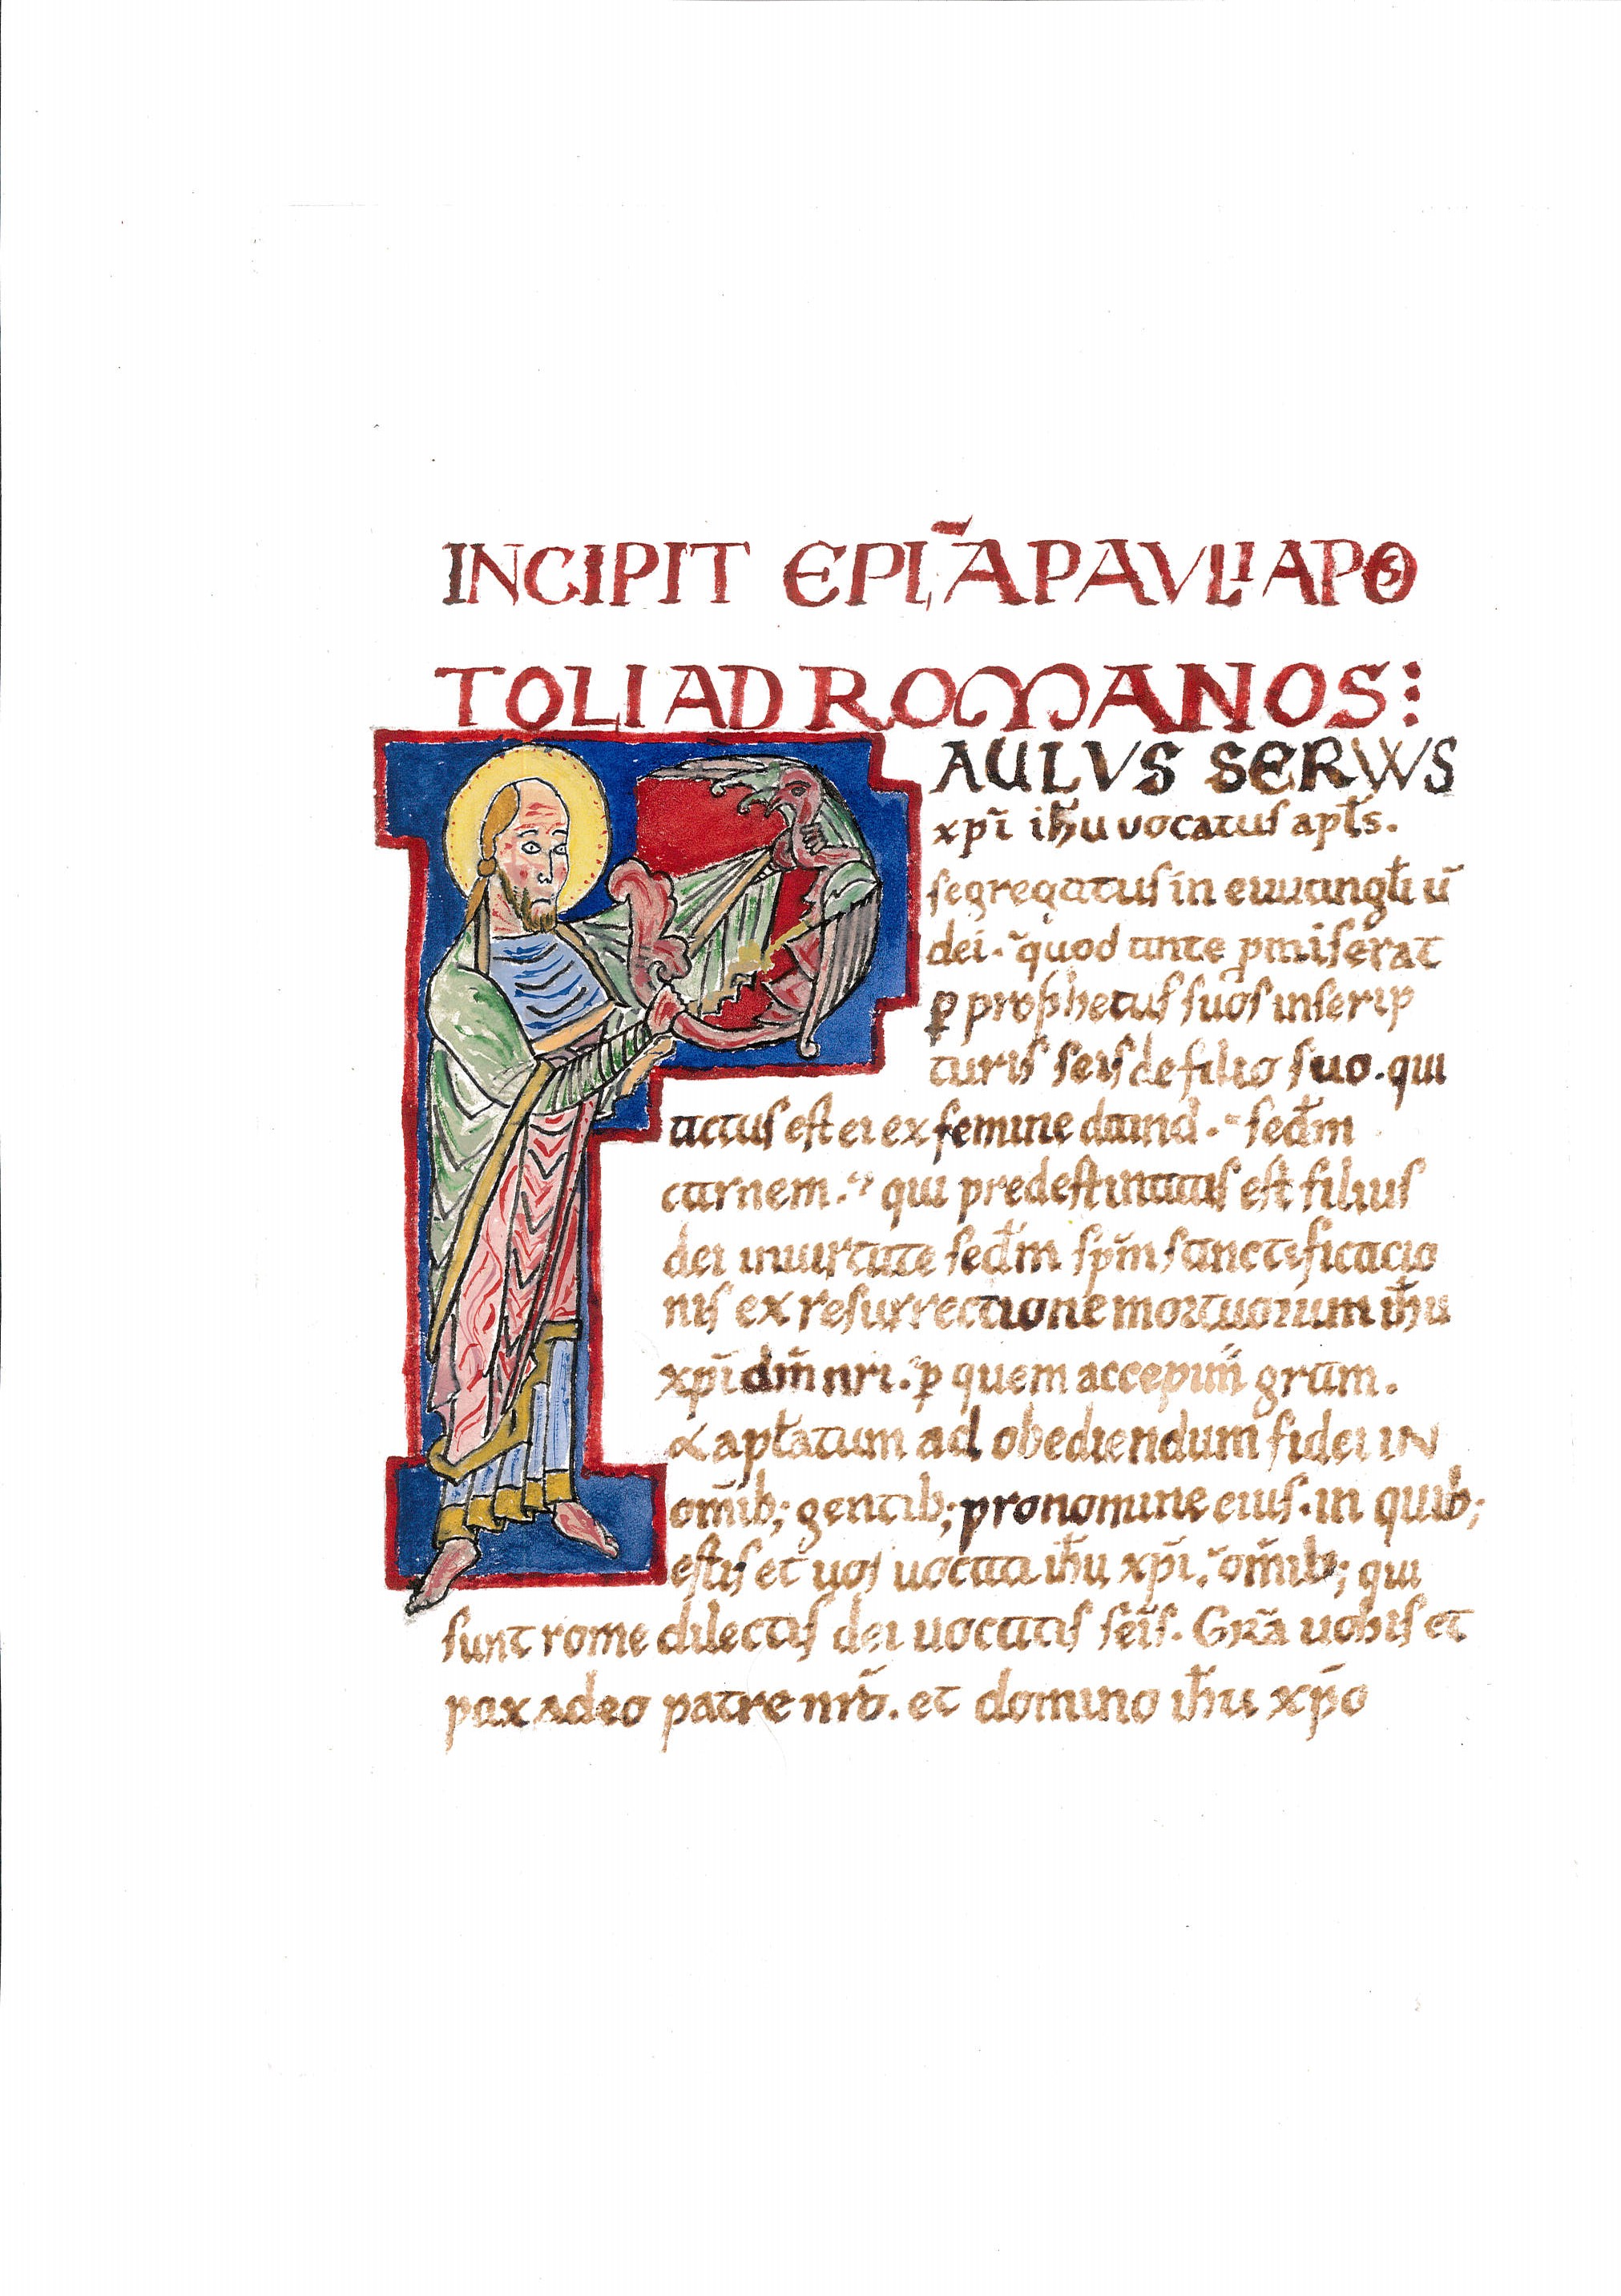 INCIPIT EPL̄A PAVLI APOS
TOLI AD ROMANOS:
PAULVS SERVVS
xpī ih̄u vocatus apl̄s.
segregatus in euuangl̄i ū
dei. quod ante ꝓmiserat
ꝑ prophetas suos in scrip
turis sc̄is de filio suo. qui
actus est ei ex semine dauid. sec̄dm
carnem. qui predestinatus est filius
dei in uirtute sec̄dm sp̄m sanctificacio
nis ex resurrectione mortuorum ih̄u
xpī dn̄i nri. ꝑ quem accepim̄ grām.
& apl̄atum ad obediendum fidei IN
om̄ib; gentib; pro nomine eius. in quib;
estis et uos uocati ih̄u xpī. om̄ib; qui
sunt rome dilectis dei uocatis sc̄is. Grā uobis et
pax a deo patre nrō. et domino ih̄u xp̄o